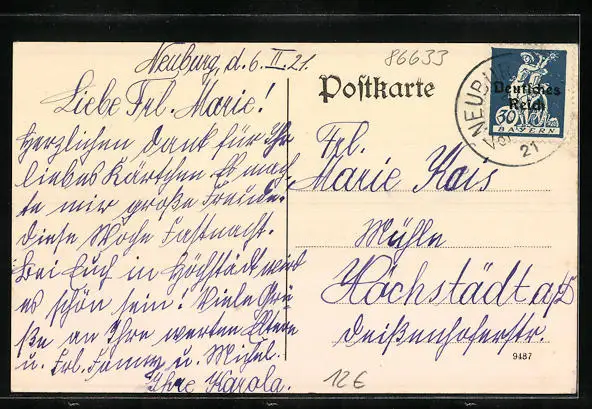 Neuburg, d. 6. II. 21.
Liebe Frl. Marie!
Herzlichen Dank für Ihr
liebes Kärtchen. Es mach-
te mir große Freude.
Diese Woche Fastnacht.
Bei Euch in Höchstädt wird
es schön sein! Viele Grü-
ße an Ihre werten Eltern
u. Frl. Fanny u. Michel.
Ihre Karola.
86633
Postkarte
Deutsches
Reich
30
BAYERN
NEUBU
21
Frl.
Marie Kais
Mühle
Höchstädt a/D
Deißenhoferstr.
9487
12€